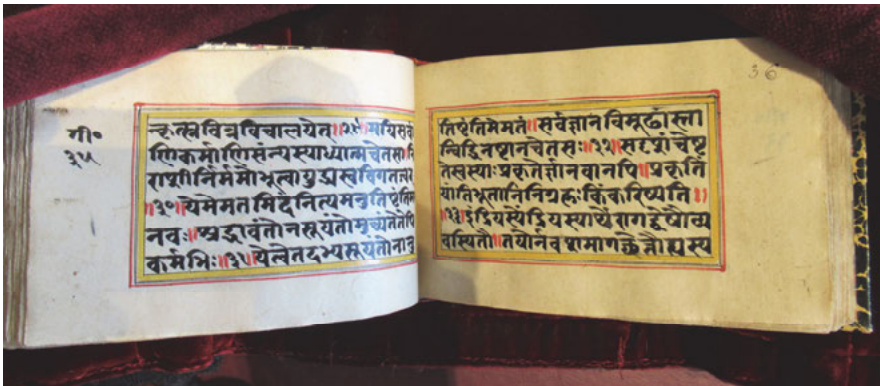 गी०
३५
न्कृत्स्नविन्नविचालयेत्॥२९॥मयिसर्वा
णिकर्माणिसंन्यस्याध्यात्मचेतसा॥नि
राशीर्निर्ममोभूत्वायुद्ध्यस्वविगतज्वर
॥३०॥येमेमतमिदंनित्यमनुतिष्ठंतिमा
नवाः॥श्रद्धावंतोनसूयंतोमुच्यंतेतेपि
कर्मभिः॥३१॥येत्वेतदभ्यसूयंतोनानु
36
तिष्ठंतिमेमतं॥सर्वज्ञानविमूढांस्ता
न्विद्धिनष्टानचेतसः॥३२॥सदृशंचेष्ट
तेस्वस्याःप्रकृतेर्ज्ञानवानपि॥प्रकृतिं
यांतिभूतानिनिग्रहःकिंकरिष्यति॥
॥३३॥इंद्रियस्येंद्रियस्यार्थेरागद्वेषौव्य
वस्थितौ॥तयोर्नवशमागच्छेत्तौह्यस्य